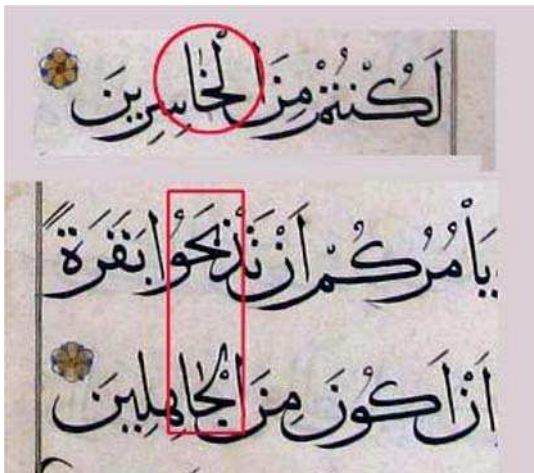 لَكُنْتُمْ مِنَ الْخَاسِرِينَ
يَأْمُرُكُمْ أَنْ تَذْبَحُوا بَقَرَةً
أَنْ أَكُونَ مِنَ الْجَاهِلِينَ